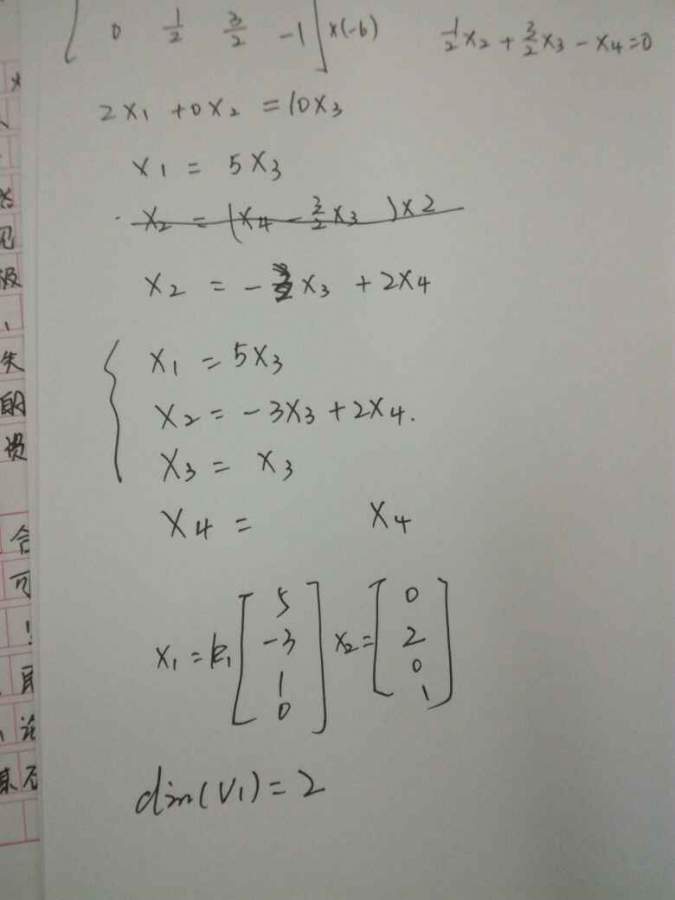 0 1/2 3/2 -1 ] x(-6) 1/2 x2 + 3/2 x3 - x4 = 0
2x1 + 0x2 = 10x3
x1 = 5x3
x2 = (x4 - 3/2 x3 ) x2
x2 = - x3 + 2x4
{ x1 = 5x3
x2 = -3x3 + 2x4.
x3 = x3
x4 = x4
x1 = k1 [ 5 -3 1 0 ] x2 = [ 0 2 0 1 ]
dim(V1) = 2
失
的
合
可
!